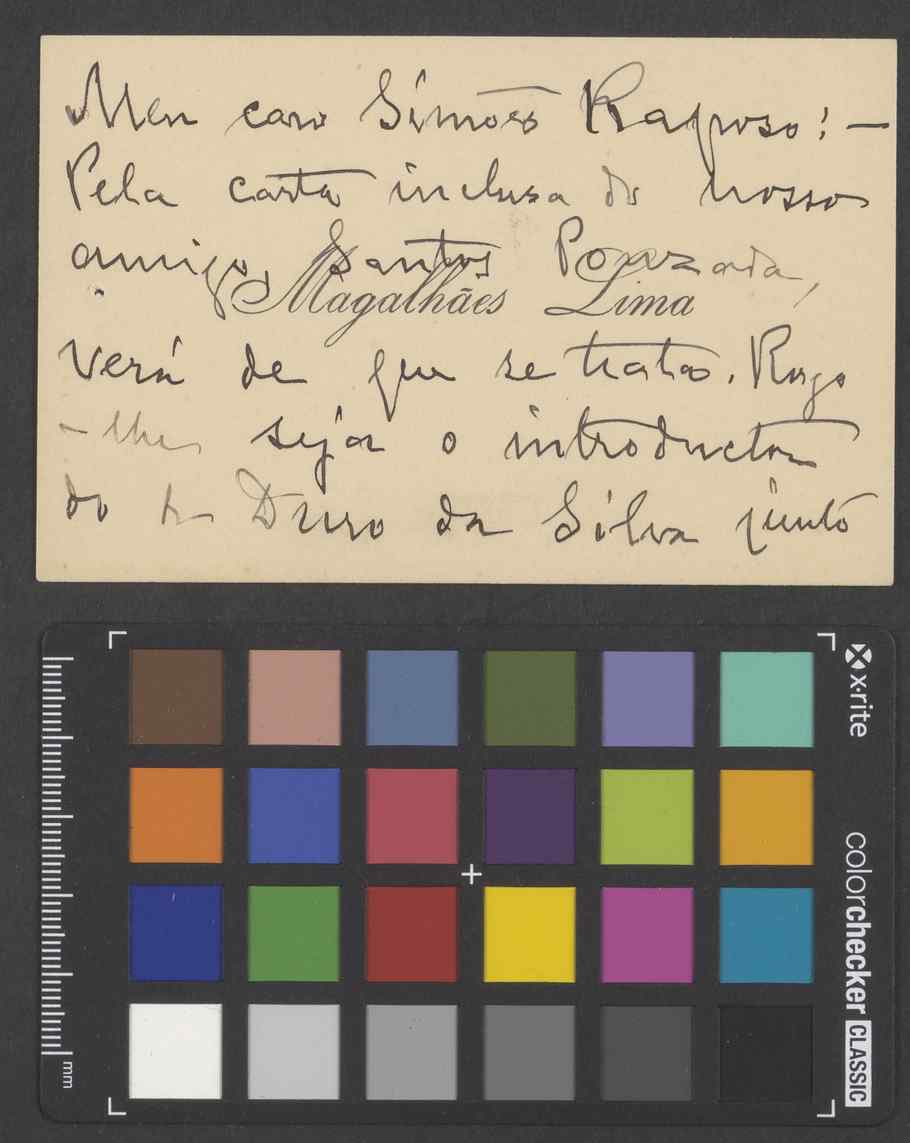 Meu caro Simões Raposo: —
Pela carta inclusa do nosso
amigo, Santos Pouzada,
Magalhães Lima
verá de que se trata. Rogo
-lhe seja o introductor
do Sr Duro da Silva junto
x·rite
colorchecker CLASSIC
mm